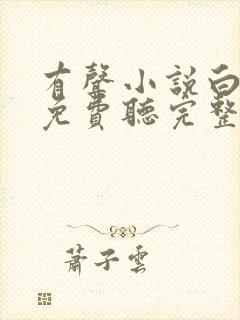 有聲小說白
免費聽完整
蕭子雲